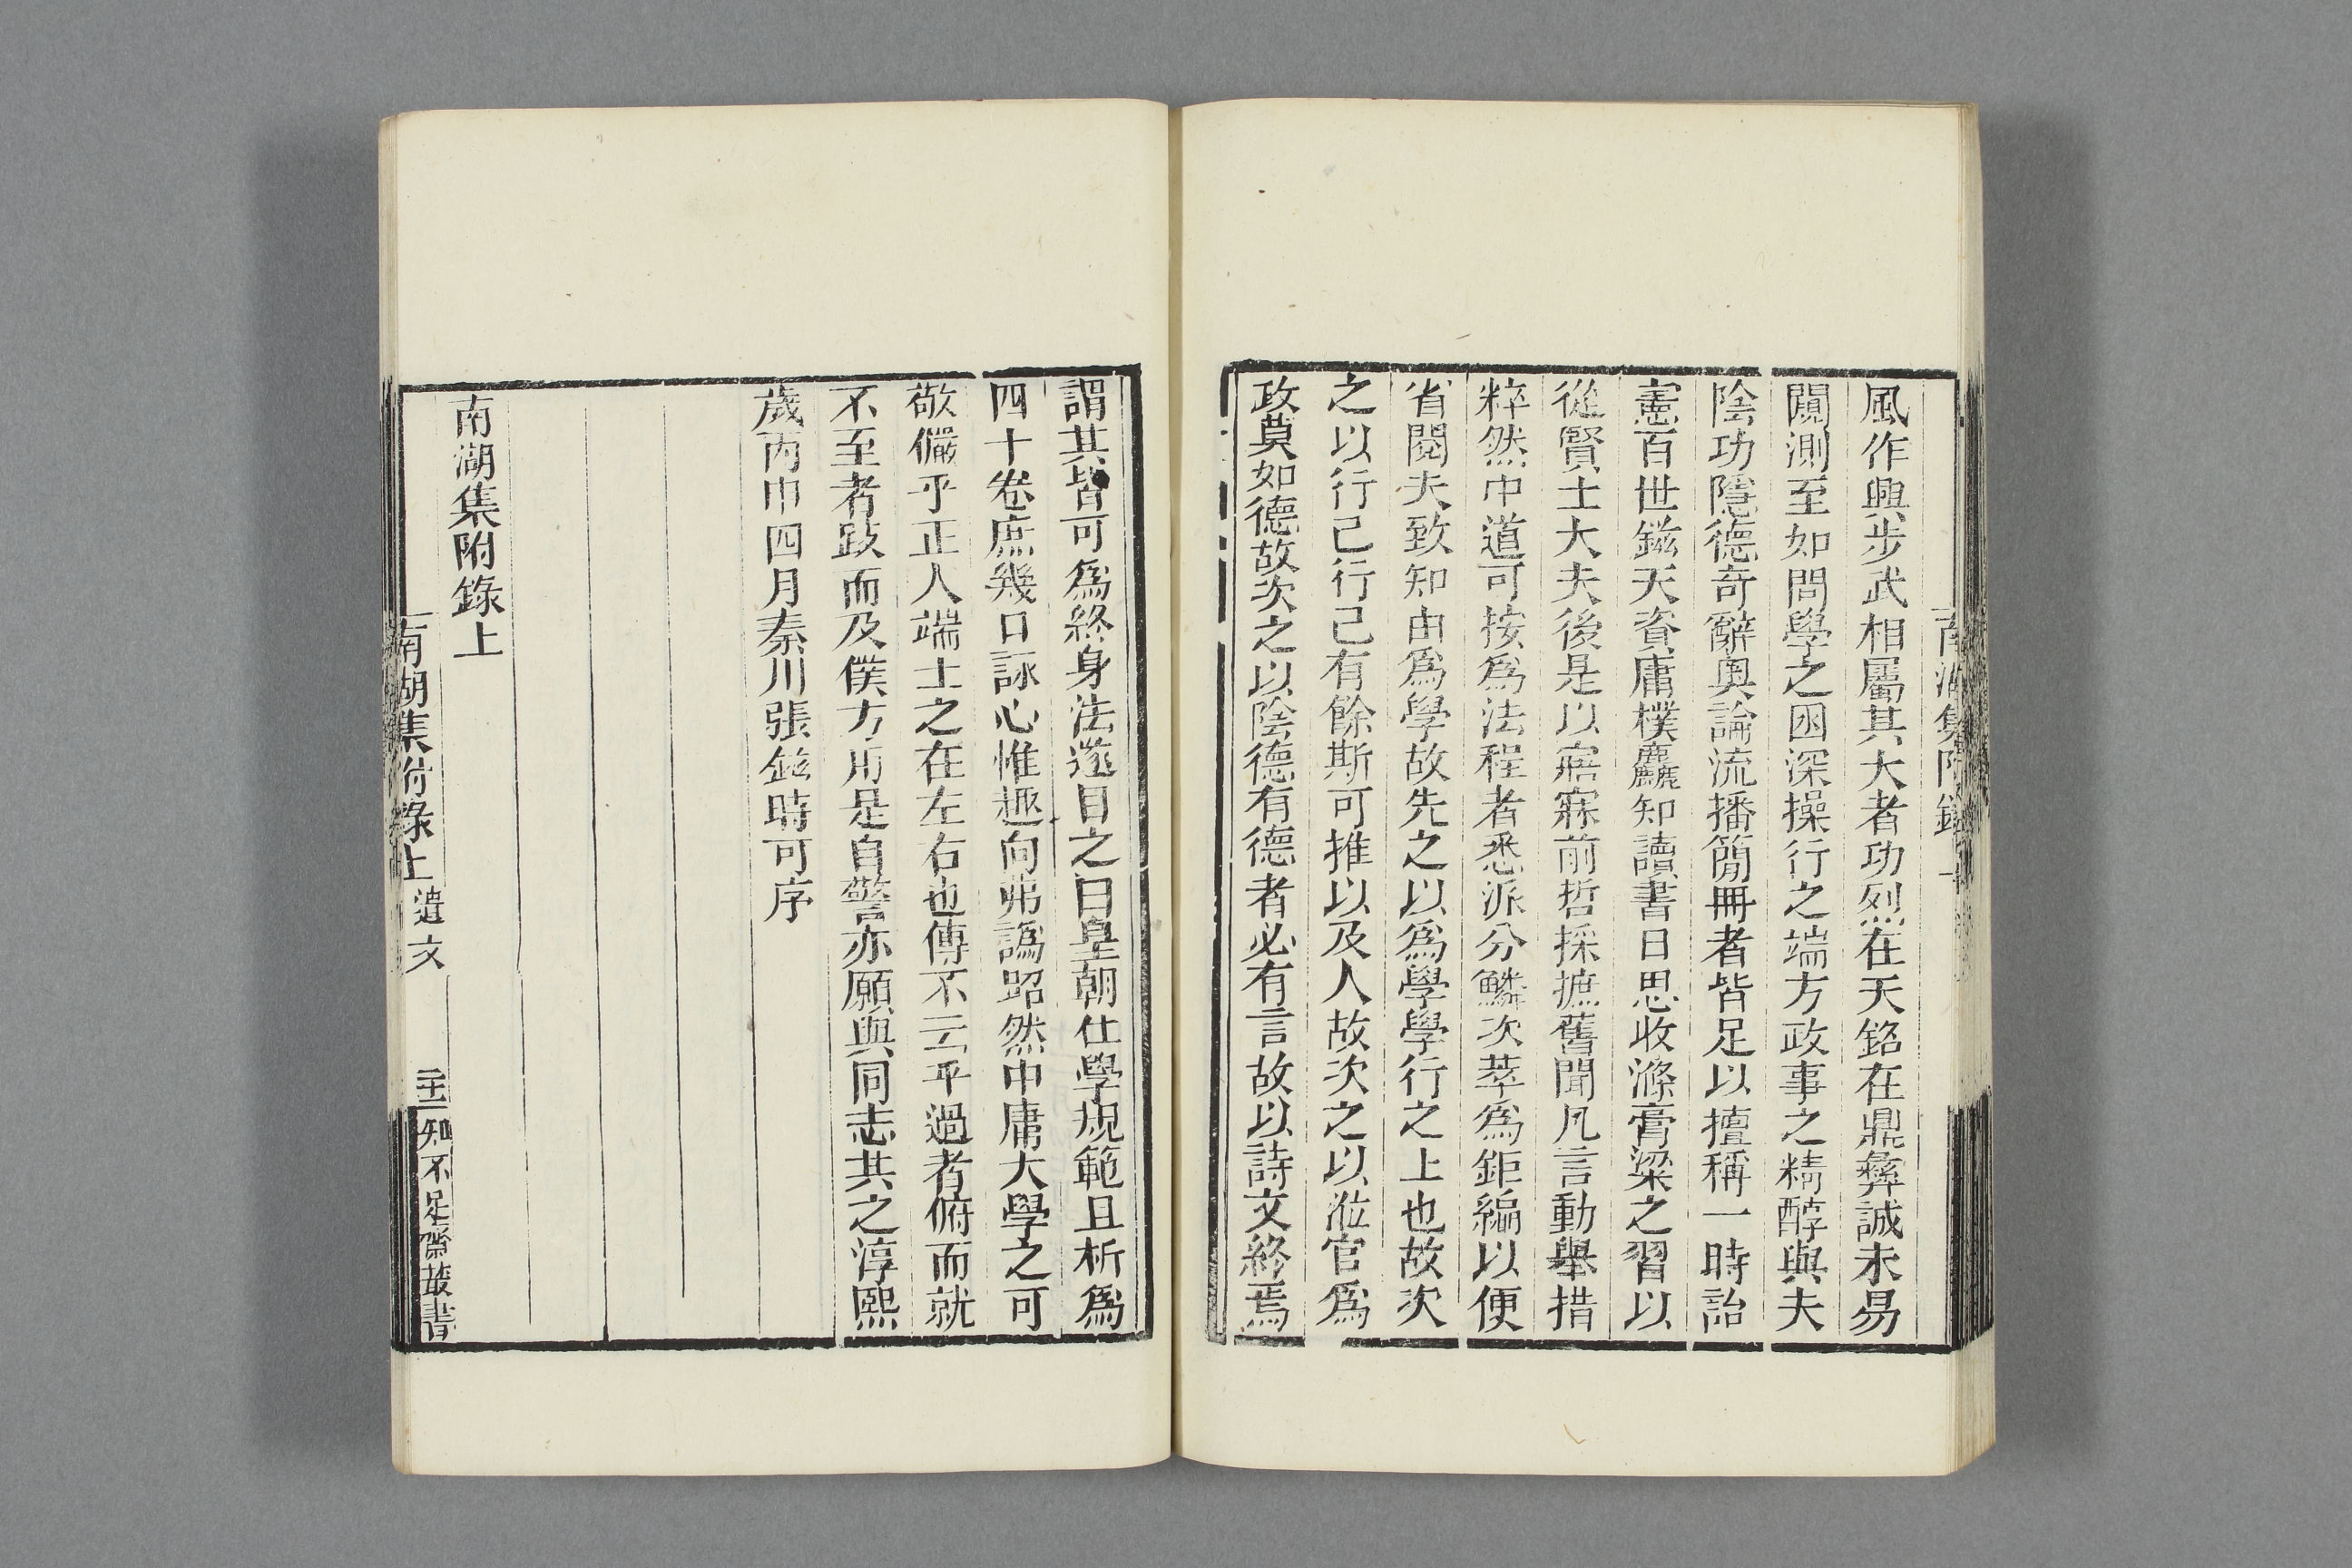 風作興步武相屬其大者功烈在天銘在鼎彝誠未易
闚測至如問學之困深操行之端方政事之精醇與夫
陰功隱德奇辭奧論流播簡冊者皆足以擅稱一時詒
憲百世鎡天資庸樸麤知讀書日思收滌膏粱之習以
從賢士大夫後是以寤寐前哲採摭舊聞凡言動舉措
粹然中道可按爲法程者悉派分鱗次萃爲鉅編以便
省閱夫致知由爲學故先之以爲學學行之上也故次
之以行己行己有餘斯可推以及人故次之以涖官爲
政莫如德故次之以陰德有德者必有言故以詩文終焉
謂其皆可爲終身法遂目之曰皇朝仕學規範且析爲
四十卷庶幾口詠心惟趣向弗譌昭然中庸大學之可
敬儼乎正人端士之在左右也傳不云乎過者俯而就
不至者跂而及僕方用是自警亦願與同志共之淳熙
歲丙申四月秦川張鎡時可序
南湖集附錄上
南湖集附錄上 遺文 知不足齋叢書